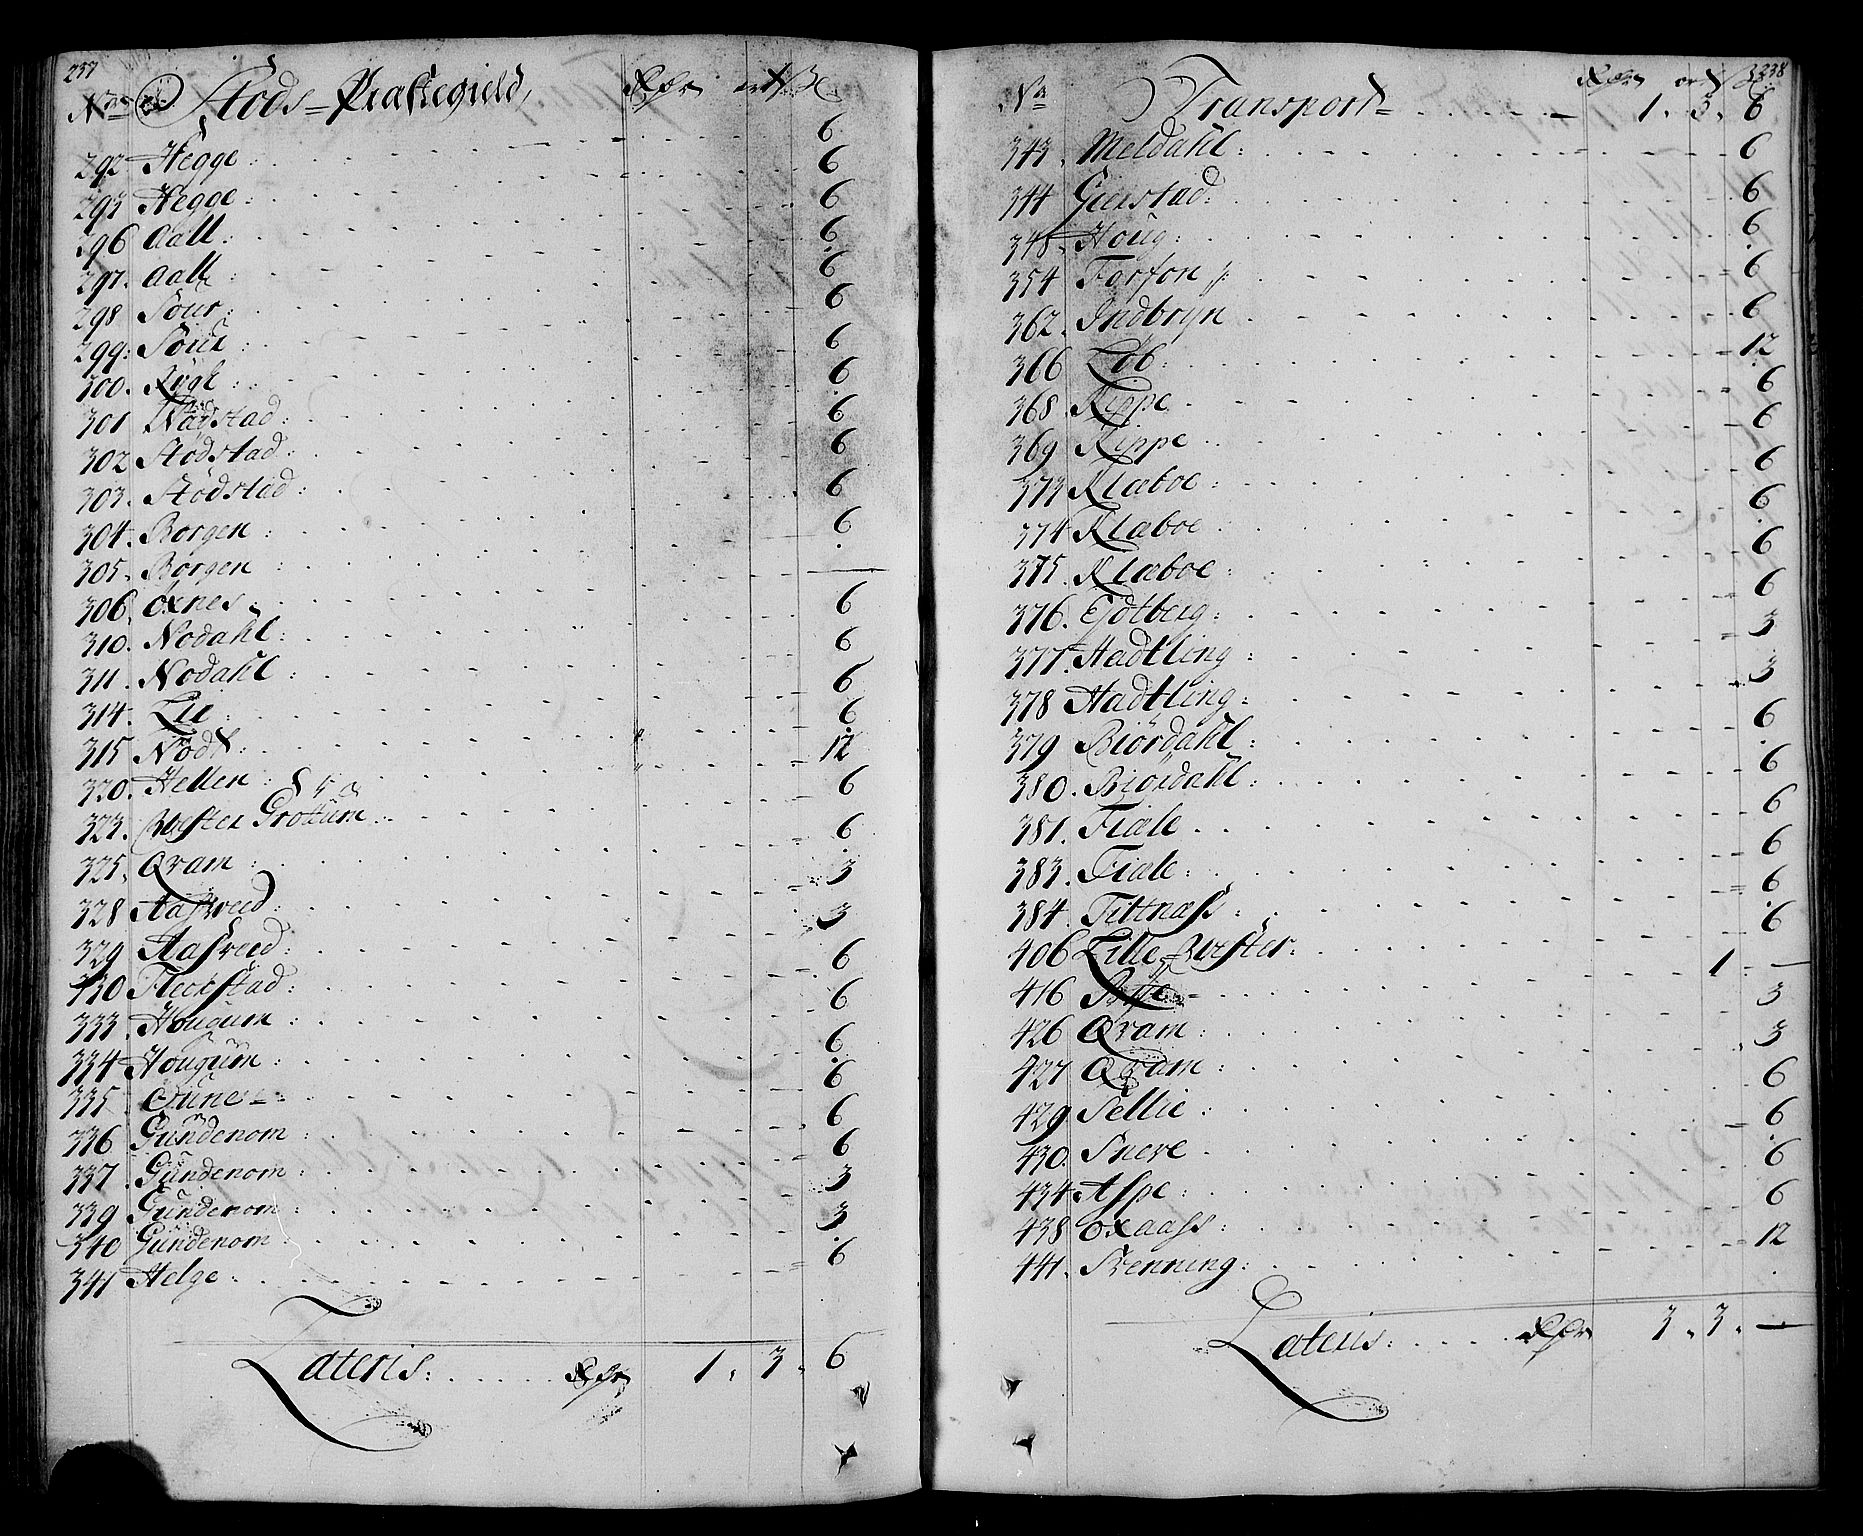 237
No Stods = Præstegield, Rdr ort ß
292 Hegge : 6
293 Hegge : 6
296 Aall : 6
297. Aall : 6
298 Sour : 6
299: Sour : 6
300. Rygh : 6
301 Nødstad : 6
302 Stodstad : 6
303. Stodstad : 6
304. Borgen : 6
305. Borgen : 6
306. Oxnes : —
310. Nodahl : 6
311. Nodahl : 6
314. Lie : 6
315 Nødt : 6
320. Hellen : 12
323. Wester Grottüm 6
325. Qvam : 6
328 Aasveed : 3
329 Aasveed : 3
330 Fleckstad : 6
333. Hougum : 6
334 Hougum : 6
335 Oünes 6
336 Gündenom : 6
337. Gündenom : 6
339 Gündenom : 3
340 Gündenom : 3
341 Helge : 6
Lateris : Rdr 1. 3. 6
238
No Rdr ort ß
Transport = 1. 3. 6
343. Meldahl : 6
344 Geestad : 6
348. Houg : 6
354 Forfon 6
362. Indbryn 6
366 Løb : 12
368. Kippe 6
369 Kippe : 6
373 Klæboe : 6
374 Klæboe 6
375. Klæboe : 6
376. Egtberg : 6
377. Hadtling : 3
378 Hadtling : 3
379 Biördahl : 6
380. Biördahl : 6
381. Fiale 6
383. Fiale : 6
384. Tittnæss : 6
406 Lille Wester : 6
416 1 —
426 Qvam : 3
427 Qvam : 3
429 Sellie : 6
430. Snere 6
434. Aspe : 6
438 Oxaass : 6
441. Brenning : 12
Lateris : Rdr 3. 3. —